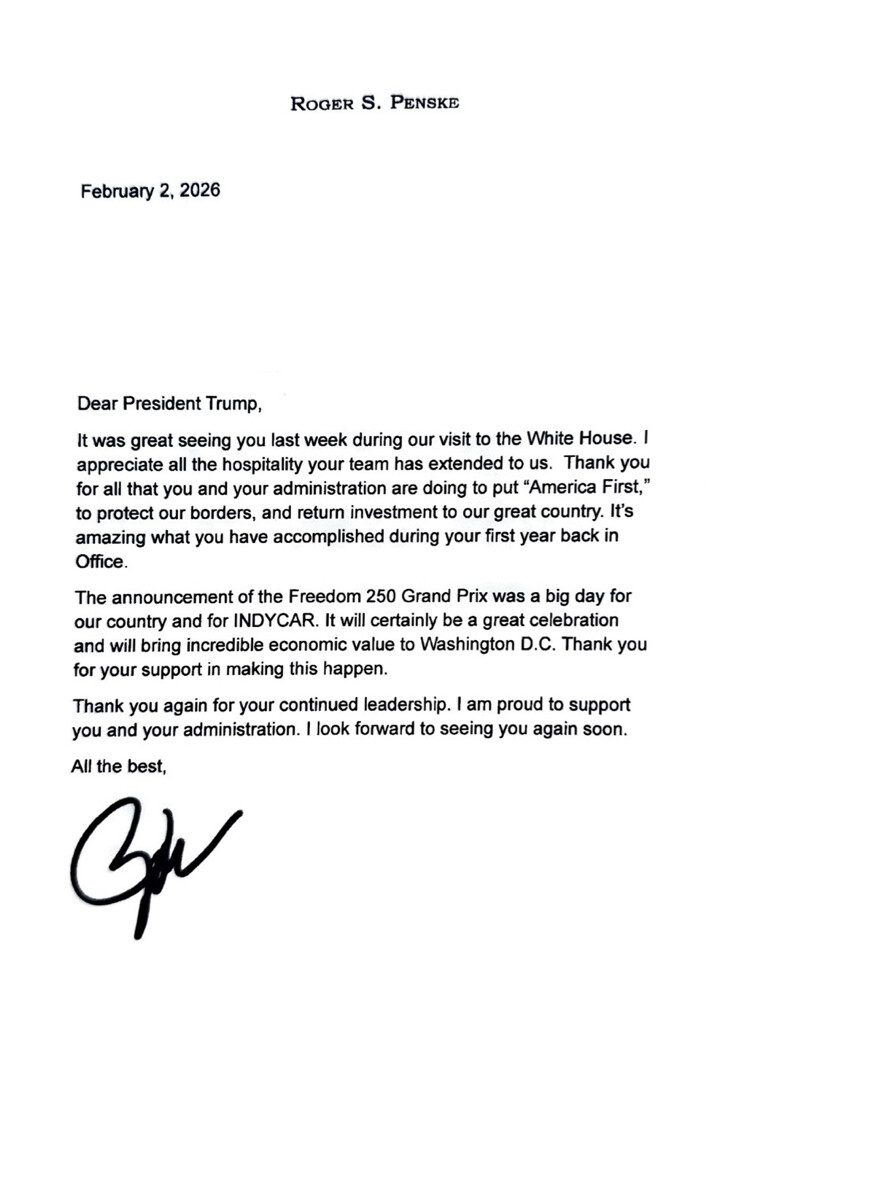 ROGER S. PENSKE
February 2, 2026
Dear President Trump,
It was great seeing you last week during our visit to the White House. I
appreciate all the hospitality your team has extended to us.  Thank you
for all that you and your administration are doing to put “America First,”
to protect our borders, and return investment to our great country. It’s
amazing what you have accomplished during your first year back in
Office.
The announcement of the Freedom 250 Grand Prix was a big day for
our country and for INDYCAR. It will certainly be a great celebration
and will bring incredible economic value to Washington D.C. Thank you
for your support in making this happen.
Thank you again for your continued leadership. I am proud to support
you and your administration. I look forward to seeing you again soon.
All the best,